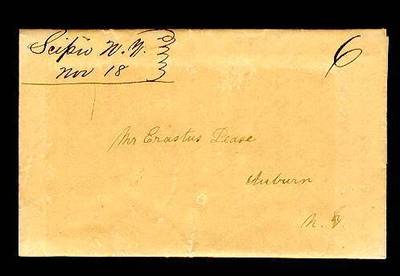 Scipio N.Y.
Nov 18
6
Mr Erastus Pease
Auburn
N.Y.